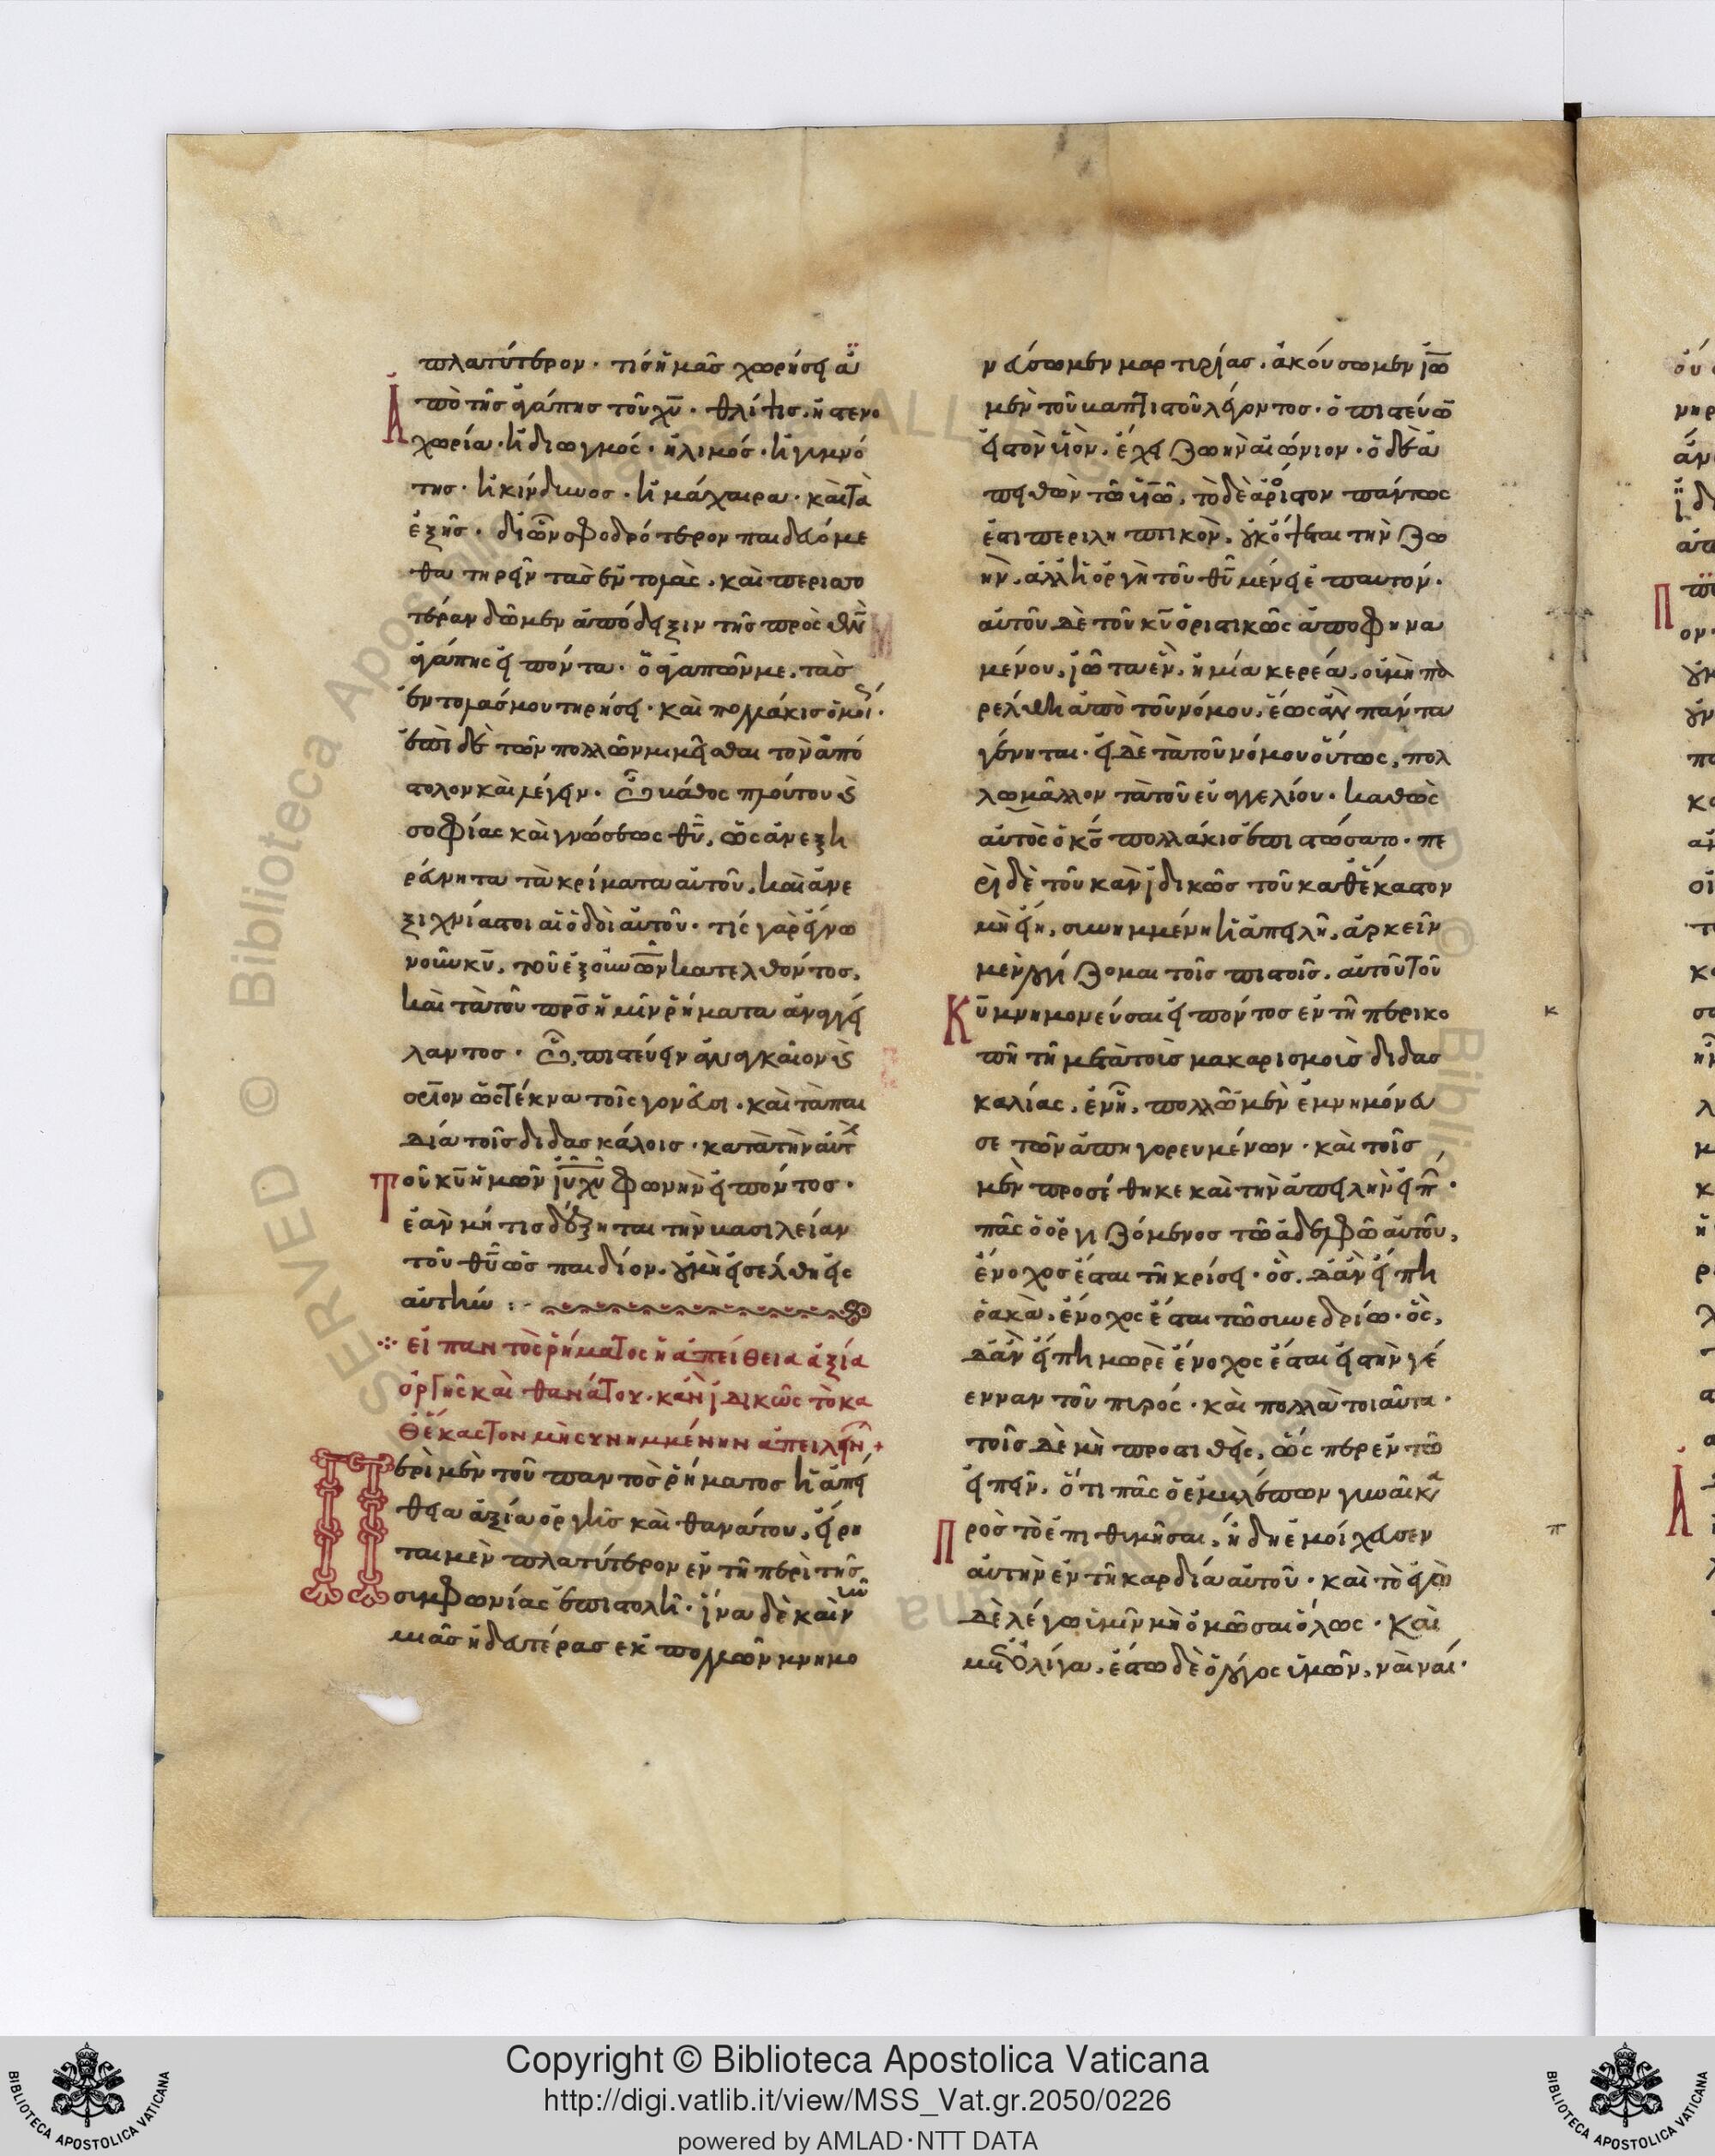 πλατύτερον· τίς ἡμᾶς χωρήσει ἀ
πὸ τῆς ἀγάπης τοῦ χυ· θλίψις· ἢ στενο
χωρία· ἢ διωγμός· ἢ λιμός· ἢ γυμνό
της· ἢ κίνδυνος· ἢ μάχαιρα· καὶ τὰ
ἑξῆς· δι' ὧν σφοδρότερον παιδευόμε
θα τηρεῖν τὰς ἐντολὰς· καὶ περισσο
τέραν δῶμεν ἀπόδειξιν τῆς πρὸς θν
ἀγάπης εἰπόντα· ὁ ἀγαπῶν με, τὰς
ἐντολάς μου τηρήσει· καὶ πολλάκις
ἐπὶ δὲ τῶν πολλῶν μιμεῖσθαι τὸν ἀπό
στολον καὶ λέγειν· ὦ βάθος πλούτου καὶ
σοφίας καὶ γνώσεως θυ, ὡς ἀνεξη
ράνητα τὰ κρίματα αὐτοῦ, καὶ ἀνε
ξιχνίαστοι αἱ ὁδοὶ αὐτοῦ· τίς γὰρ ἔγνω
νοῦν κυ, τοῦ ἐξ οὐνῶν κατελθόντος,
καὶ τὰ τοῦ πρς ἡμῖν ῥήματα ἀναγγεί
λαντος· ὦ, πιστεύειν ἀναγκαῖον καὶ
σριον ὡς τέκνα τοῖς γονεῦσι· καὶ τὰ παι
δία τοῖς διδασκάλοις· κατὰ τὴν αὐτ
Τοῦ κυ ἡμῶν ιυ χυ φωνὴν εἰπόντος·
ἐὰν μή τις δέξηται τὴν βασιλείαν
τοῦ θυ ὡς παιδίον, οὐ μὴ εἰσέλθη εἰς
αὐτήν :-
εἰ παντὸς ῥήματος ἡ ἀπείθεια ἀξία
ὀργῆς καὶ θανάτου· κἂν ἰδικῶς τὸ κα
θ' ἕκαστον μὴ συνημμένην ἀπειλὴν +
Περὶ μὲν τοῦ παντὸς ῥήματος ἡ ἀπεί
θεια ἀξία ὀργῆς καὶ θανάτου, εἴρη
ται μὲν πλατύτερον ἐν τῆ περὶ τῆς
συμφωνίας ἐπιστολῆ· ἵνα δὲ καὶ νῦν
μιᾶς ἢ δευτέρας ἐκ πολλῶν μνημο
νεύσωμεν μαρτυρίας, ἀκούσωμεν ιω
μὲν τοῦ βαπτιστοῦ λέγοντος· ὁ πιστεύων
εἰς τὸν υἱὸν, ἔχει ζωὴν αἰώνιον· ὁ δὲ ἀ
πειθῶν τῶ υἱῶ, τὸ δὲ ἀόριστον πάντως
ἐστι περιληπτικὸν, οὐκ ὄψεται τὴν ζω
ὴν, ἀλλ' ἡ ὀργὴ τοῦ θυ μένει ἐπ αὐτόν·
αὐτοῦ δὲ τοῦ κυ ὁριστικῶς ἀποφηνα
μένου, ἰῶτα ἓν, ἢ μία κερέα, οὐ μὴ πα
ρέλθη ἀπὸ τοῦ νόμου, ἕως ἂν πάντα
γένηται· εἰ δὲ τὰ τοῦ νόμου οὕτως, πολ
λῶ μᾶλλον τὰ τοῦ εὐαγγελίου· καθὼς
αὐτὸς ὁ κς πολλάκις ἐπιστώσατο· πε
ρὶ δὲ τοῦ κἂν ἰδικῶς τοῦ καθ' ἕκαστον
μὴ εἴη, συνημμένη ἡ ἀπειλὴ, ἀρκεῖν
μὲν λογίζομαι τοῖς πιστοῖς, αὐτοῦ τοῦ
Κυ μνημονεῦσαι εἰπόντος ἐν τῆ περικο
πῆ τῆ μετὰ τοῖς μακαρισμοῖς διδασ
καλίας, ἐν ἧ, πολλῶν μὲν ἐμνημόνευ
σε τῶν ἀπηγορευμένων· καὶ τοῖς
μὲν προσέθηκε καὶ τὴν ἀπειλὴν εἰπ·
πᾶς ὁ ὀργιζόμενος τῶ ἀδελφῶ αὐτοῦ,
ἔνοχος ἔσται τῆ κρίσει· ὃς, δ' ἂν εἴπη
ῥακὰ, ἔνοχος ἔσται τῶ συνεδρίω· ὃς,
δ' ἂν εἴπη μωρὲ ἔνοχος ἔσται εἰς τὴν γέ
ενναν τοῦ πυρός· καὶ πολλὰ τοιαῦτα·
τοῖς δὲ μὴ προστιθεὶς, ὥσπερ ἐν τῶ
εἰπεῖν, ὅτι πᾶς ὁ ἐμβλέπων γυναῖκα
Πρὸς τὸ ἐπιθυμῆσαι, ἤδη ἐμοίχευσεν
αὐτὴν ἐν τῆ καρδία αὐτοῦ· καὶ τὸ ἐγὼ
δὲ λέγω ὑμῖν μὴ ὀμῶσαι ὅλως· Καὶ
μετ' ὀλίγα, ἔστω δὲ ὁ λόγος ὑμῶν, ναὶ ναί·
κ
π
Copyright © Biblioteca Apostolica Vaticana
http://digi.vatlib.it/view/MSS_Vat.gr.2050/0226
powered by AMLAD·NTT DATA
BIBLIOTECA APOSTOLICA VATICANA
BIBLIOTECA APOSTOLICA VATICANA